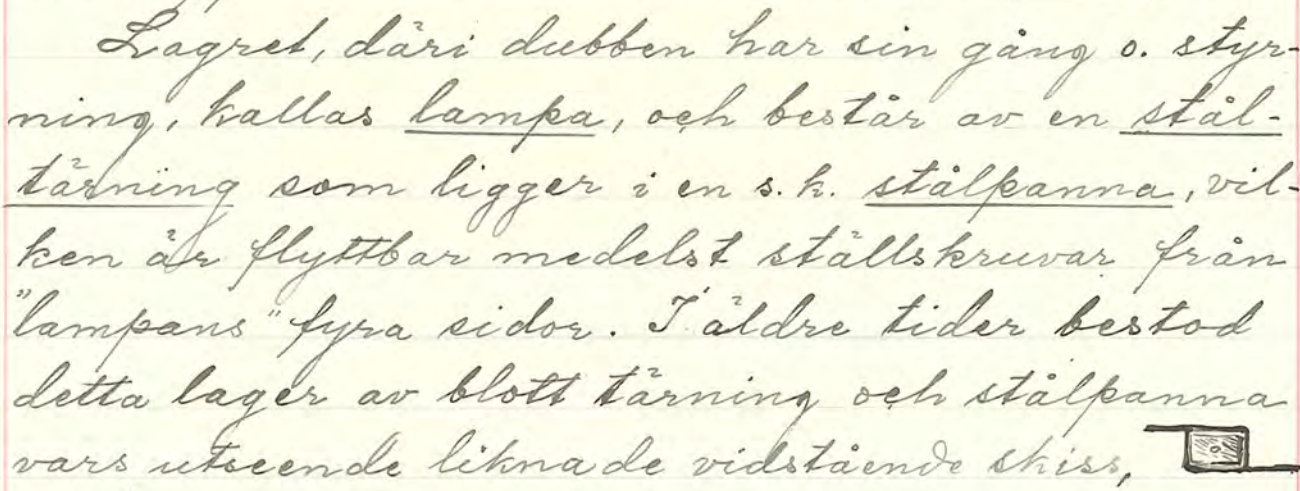 Lagret, däri dubben har sin gång o. styr-
ning, kallas lampa, och består av en stål-
tärning som ligger i en s.k. stålpanna, vil-
ken är flyttbar medelst ställskruvar från
"lampans" fyra sidor. I äldre tider bestod
detta lager av blott tärning och stålpanna
vars utseende liknade vidstående skiss,